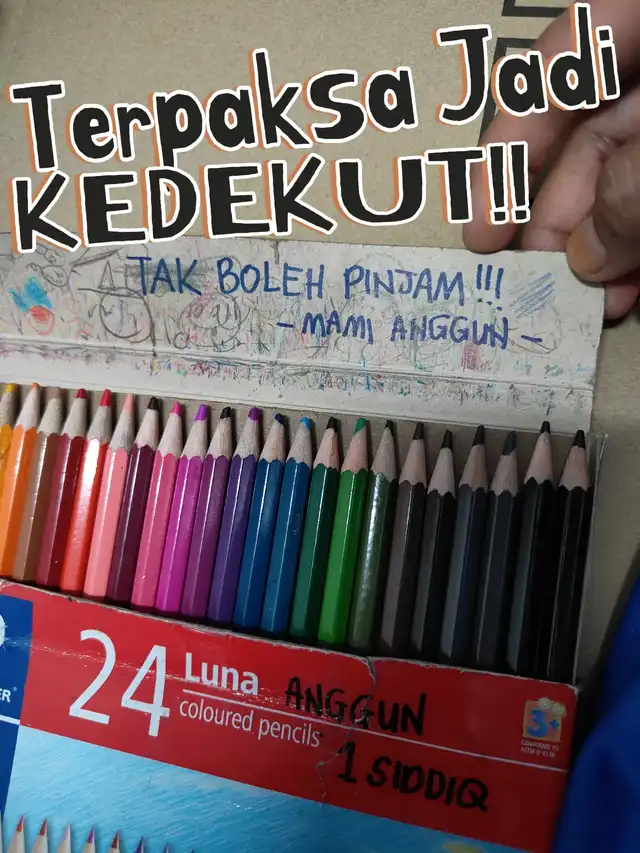 Terpaksa Jadi
KEDEKUT!!
TAK BOLEH PINJAM!!!
- MAMI ANGGUN -
24 Luna
coloured pencils
ANGGUN
1 SIDDIQ
3+